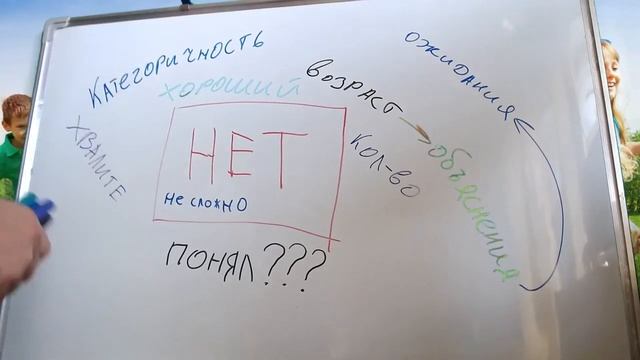 Категоричность
ожидания
хороший
возраст
хвалите
НЕТ
кол-во
объяснения
не сложно
понял???